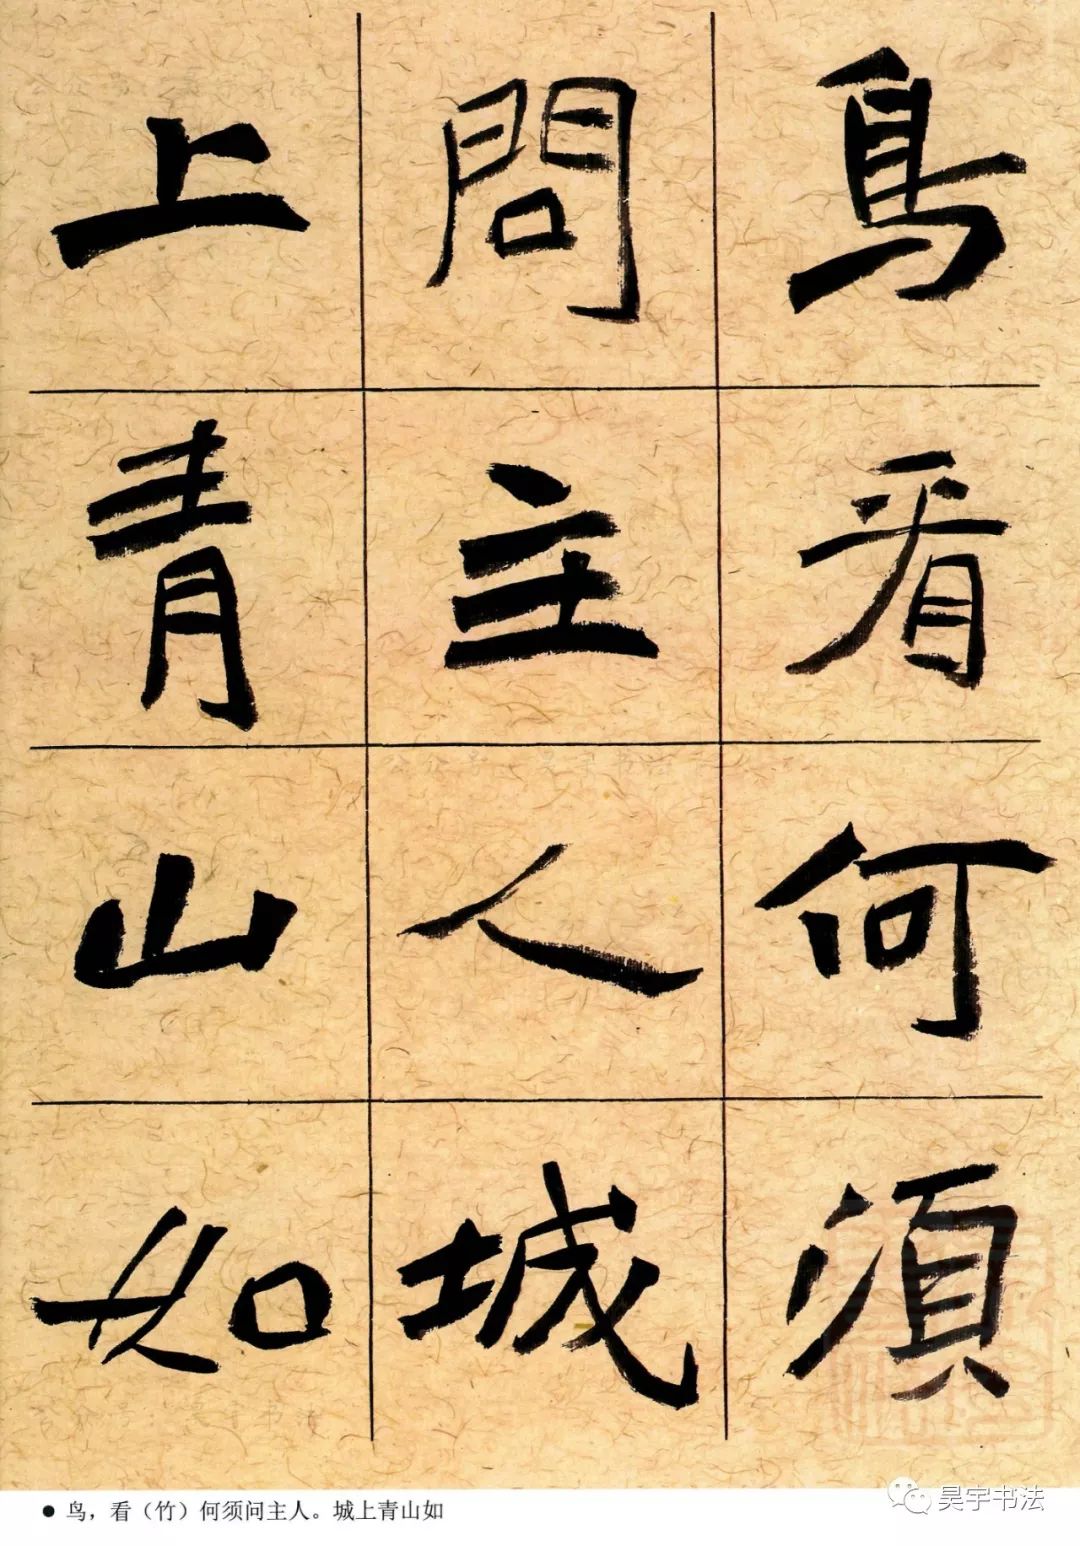 鳥看何須
問主人城
上青山如
● 鸟，看（竹）何须问主人。城上青山如
昊宇书法